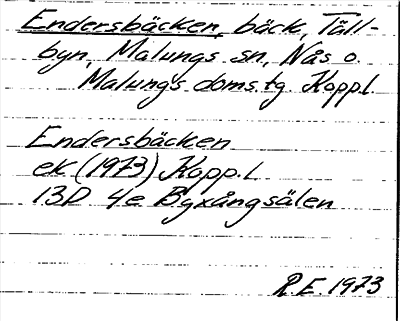 Endersbäcken, bäck, Täll-
byn, Malungs sn, Nås o.
Malungs doms.tg Kopp.l
Endersbäcken
ek (1973) Kopp.l
13D 4e Byxångsälen
R.E. 1973